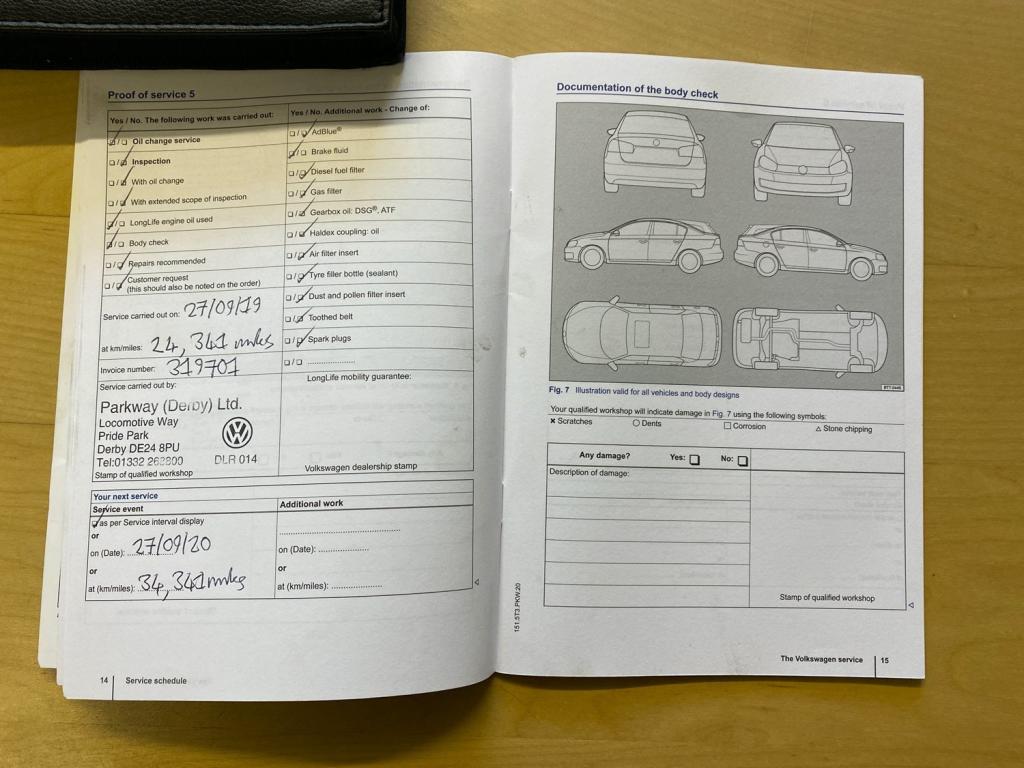 Proof of service 5
Yes / No. The following work was carried out:
☑/☐ Oil change service
☐/☑ Inspection
☐/☑ With oil change
☐/☑ With extended scope of inspection
☑/☐ LongLife engine oil used
☑/☐ Body check
☐/☑ Repairs recommended
☐/☑ Customer request
(this should also be noted on the order)
Service carried out on: 27/09/19
at km/miles: 24,341 miles
Invoice number: 319701
Service carried out by:
Parkway (Derby) Ltd.
Locomotive Way
Pride Park
Derby DE24 8PU
Tel:01332 262800
DLR 014
Stamp of qualified workshop
Yes / No. Additional work - Change of:
☐/☑ AdBlue®
☑/☐ Brake fluid
☐/☑ Diesel fuel filter
☐/☑ Gas filter
☐/☑ Gearbox oil: DSG®, ATF
☐/☑ Haldex coupling: oil
☐/☑ Air filter insert
☐/☑ Tyre filler bottle (sealant)
☐/☑ Dust and pollen filter insert
☐/☑ Toothed belt
☐/☑ Spark plugs
☐/☐ ....................
LongLife mobility guarantee:
Volkswagen dealership stamp
Your next service
Service event
☑ as per Service interval display
or
on (Date): 27/09/20
or
at (km/miles): 34,341 miles
Additional work
................................
on (Date): ..................
or
at (km/miles): ..................
14 Service schedule
Documentation of the body check
Fig. 7 Illustration valid for all vehicles and body designs
Your qualified workshop will indicate damage in Fig. 7 using the following symbols:
× Scratches ○ Dents □ Corrosion △ Stone chipping
Any damage? Yes: ☐ No: ☐
Description of damage:
Stamp of qualified workshop
151.5T3.PKW.20
The Volkswagen service 15